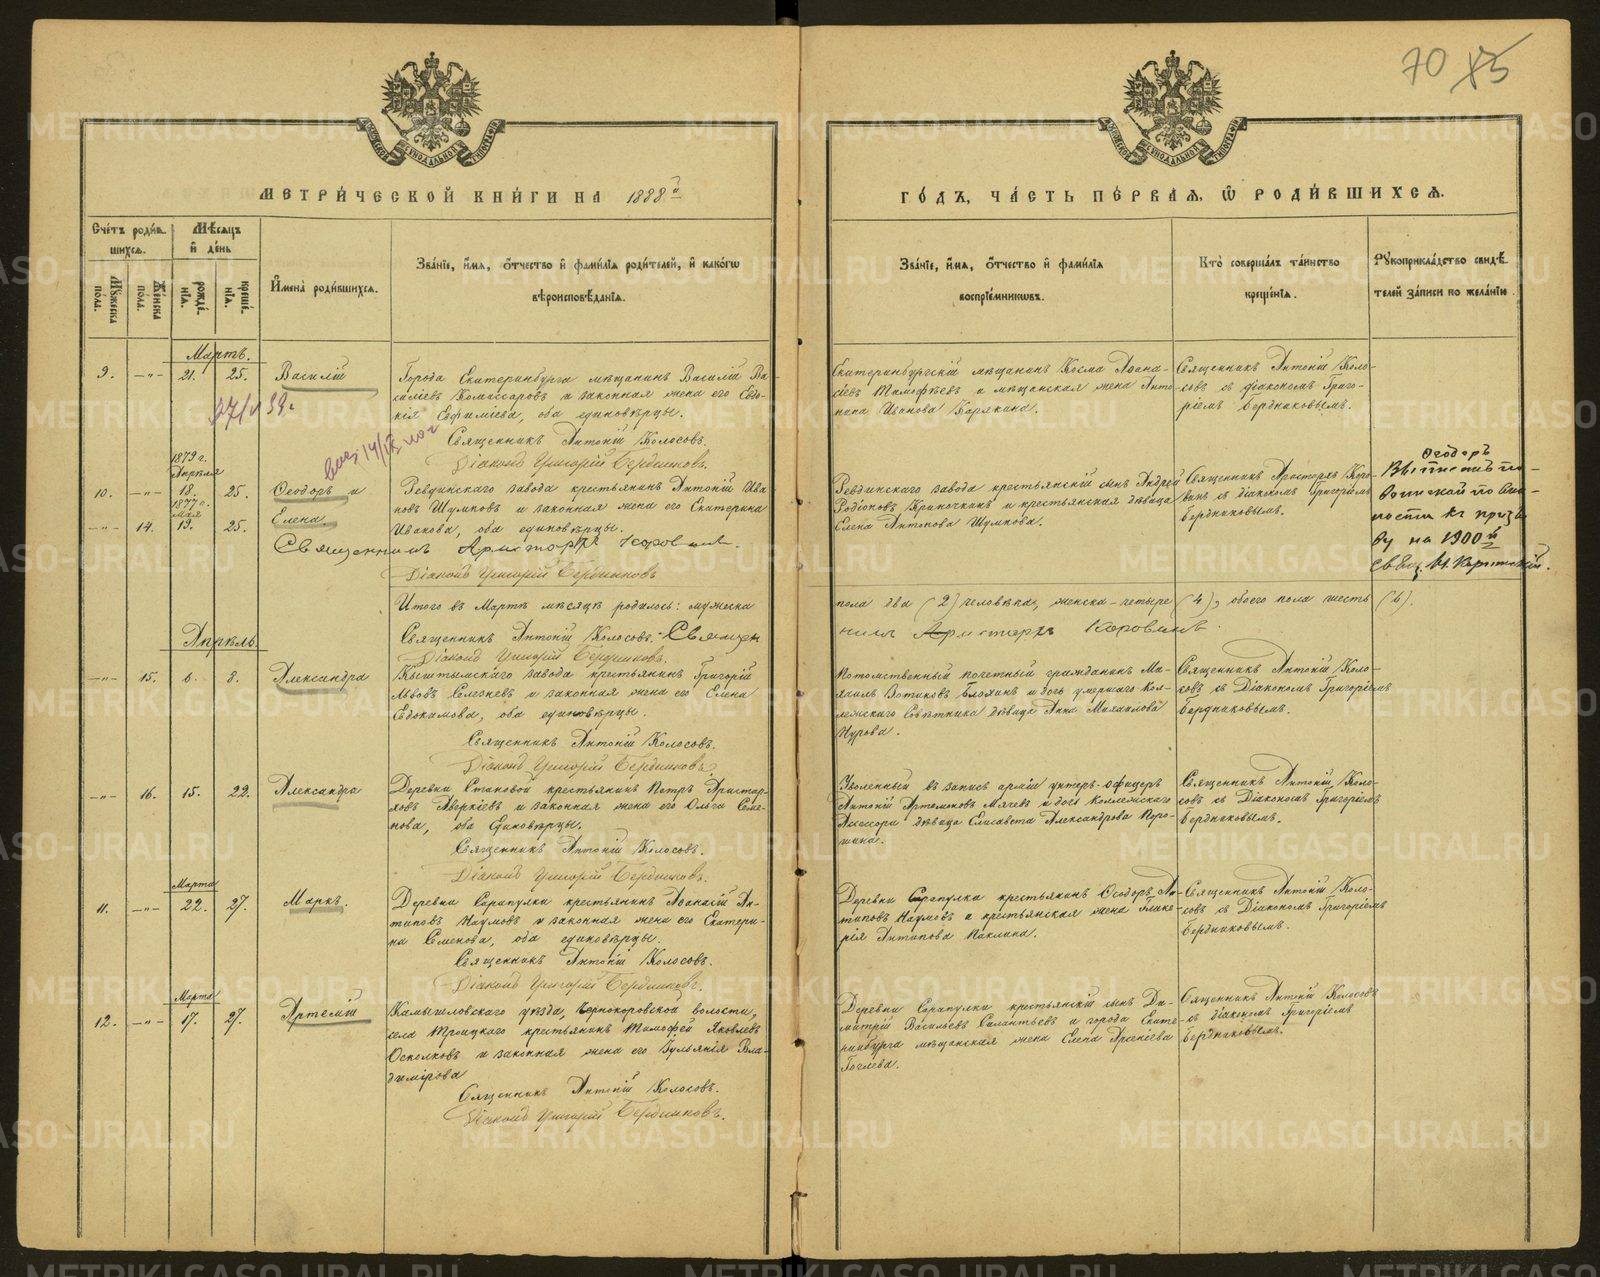 70 85
МЕТРИ́ЧЕСКОЙ КНИ́ГИ НА 1888й
ГО́ДЪ, ЧА́СТЬ ПЕ́РВАЯ, Ѿ РОДИ́ВШИХСЯ.
Сче́тъ роди́в-
шихся.
Му́жеска по́ла.
Же́нска по́ла.
Мѣ́сяцъ
и҆ де́нь
рожде́-
нїя.
креще́-
нїя.
И҆мена̀ роди́вшихся.
Зва́нїе, и҆́мя, ѻ҆́тчество и҆ фами́лїя роди́телей, и҆ како́гѡ
вѣроисповѣ́данїя.
Зва́нїе, и҆́мя, ѻ҆́тчество и҆ фами́лїя
воспрїе́мникѡвъ.
Кто̀ соверша́лъ та́инство
креще́нїя.
Рукоприкла́дство свидѣ́-
телей за́писи по жела́нїю.
Мартъ.
9. —„— 21. 25. Василій
Города Екатеринбурга мѣщанинъ Василій Ва-
силіевъ Комиссаровъ и законная жена его Евдо-
кія Ефиміева, оба единовѣрцы.
Священникъ Антоній Колосовъ.
Діаконъ Григорій Бердниковъ.
Екатеринбургскій мѣщанинъ Косма Аѳана-
сіевъ Тимофѣевъ и мѣщанская жена Анто-
нина Иванова Карякина.
Священникъ Антоній Коло-
совъ съ діакономъ Григо-
ріемъ Бердниковымъ.
1879 г.
Апрѣля
10. —„— 18. 25. Ѳеодоръ и
1877 г.
мая
—„— 14. 19. 25. Елена.
Ревдинскаго завода крестьянинъ Антоній Ива-
новъ Шумковъ и законная жена его Екатерина
Иванова, оба единовѣрцы.
Священникъ Аристархъ Коровинъ.
Діаконъ Григорій Бердниковъ
Ревдинскаго завода крестьянскій сынъ Андрей
Родіоновъ и крестьянская дѣвица
Елена Антонова Шумкова.
Священникъ Аристархъ Коро-
винъ съ діакономъ Григоріемъ
Бердниковымъ.
Ѳеодоръ
на 1900й
Итого въ Мартѣ мѣсяцѣ родилось: мужеска
пола два (2) человѣка, женска - четыре (4), обоего пола шесть (6).
Священникъ Антоній Колосовъ. Священ
никъ Аристархъ Коровинъ.
Діаконъ Григорій Бердниковъ.
Апрѣль.
—„— 15. 6. 8. Александра
Кыштымскаго завода крестьянинъ Григорій
Львовъ Селезневъ и законная жена его Елена
Евдокимова, оба единовѣрцы.
Священникъ Антоній Колосовъ.
Діаконъ Григорій Бердниковъ.
Потомственный почетный гражданинъ Ми-
хаилъ Зотиковъ Блохинъ и дочь умершаго Кол-
лежскаго Совѣтника дѣвица Анна Михаилова
Нурова.
Священникъ Антоній Коло-
совъ съ Діакономъ Григоріемъ
Бердниковымъ.
—„— 16. 15. 22. Александра
Деревни Становой крестьянинъ Петръ Аристар-
ховъ Аверкіевъ и законная жена его Ольга Семе-
нова, оба Единовѣрцы.
Священникъ Антоній Колосовъ.
Діаконъ Григорій Бердниковъ.
Уволенный въ запасъ арміи унтеръ-офицеръ
Антоній Артемоновъ Мячевъ и дочь Коллежскаго
Ассессора дѣвица Елисавета Александрова Поро-
шина.
Священникъ Антоній Коло-
совъ съ Діакономъ Григоріемъ
Бердниковымъ.
Марта
11. —„— 22. 27. Маркъ.
Деревни Сарапулки крестьянинъ Аѳанасій Ан-
типовъ Наумовъ и законная жена его Екатери-
на Семенова, оба единовѣрцы.
Священникъ Антоній Колосовъ.
Діаконъ Григорій Бердниковъ.
Деревни Сарапулка крестьянинъ Ѳеодоръ Ан-
типовъ Наумовъ и крестьянская жена Глике-
рія Антипова Паклина.
Священникъ Антоній Коло-
совъ съ Діакономъ Григоріемъ
Бердниковымъ.
Марта
12. —„— 17. 27. Артемій
Камышловскаго уѣзда, Чернокоровской волости,
села Троицкаго крестьянинъ Тимофей Яковлевъ
Осколковъ и законная жена его Іульянія Вла-
димірова
Священникъ Антоній Колосовъ.
Діаконъ Григорій Бердниковъ.
Деревни Сарапулки крестьянскій сынъ Ди-
митрій Васильевъ Силантьевъ и города Екате-
ринбурга мѣщанская жена Елена Арсеніева
Гоглева.
Священникъ Антоній Колосовъ
съ діакономъ Григоріемъ
Бердниковымъ.
METRIKI.GASO-URAL.RU